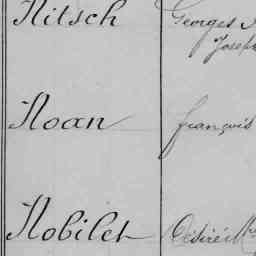 Nitsch Georges
Joseph
Noan françois
Nobilet Désiré